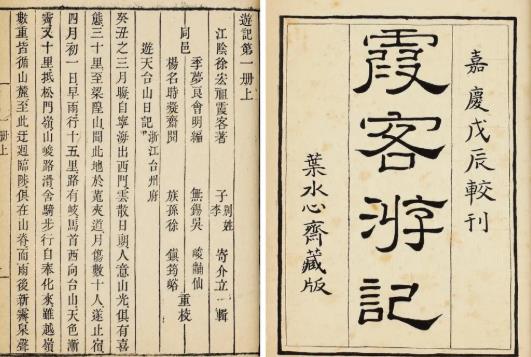 嘉慶戊辰較刊
霞客游記
葉水心齋藏版
遊記第一册上
江陰徐宏祖霞客著 子李寄介立輯
別姓
季夢良會明編 無錫吳峻仙
同邑 重校
楊名時凝齋閱 族孫徐鎮筠峪
遊天台山日記 浙江台州府
癸丑之三月晦自寧海出西門雲散日朗人意山光俱有喜
態三十里至梁隍山聞此地於菟夾道月傷數十人遂止宿
四月初一日早雨行十五里路有岐馬首西向台山天色漸
霽又十里抵松門嶺山峻路滑舍騎步行自奉化來雖越嶺
數重皆循山麓至此迂迴臨陟俱在山脊而雨後新霽泉聲
册上